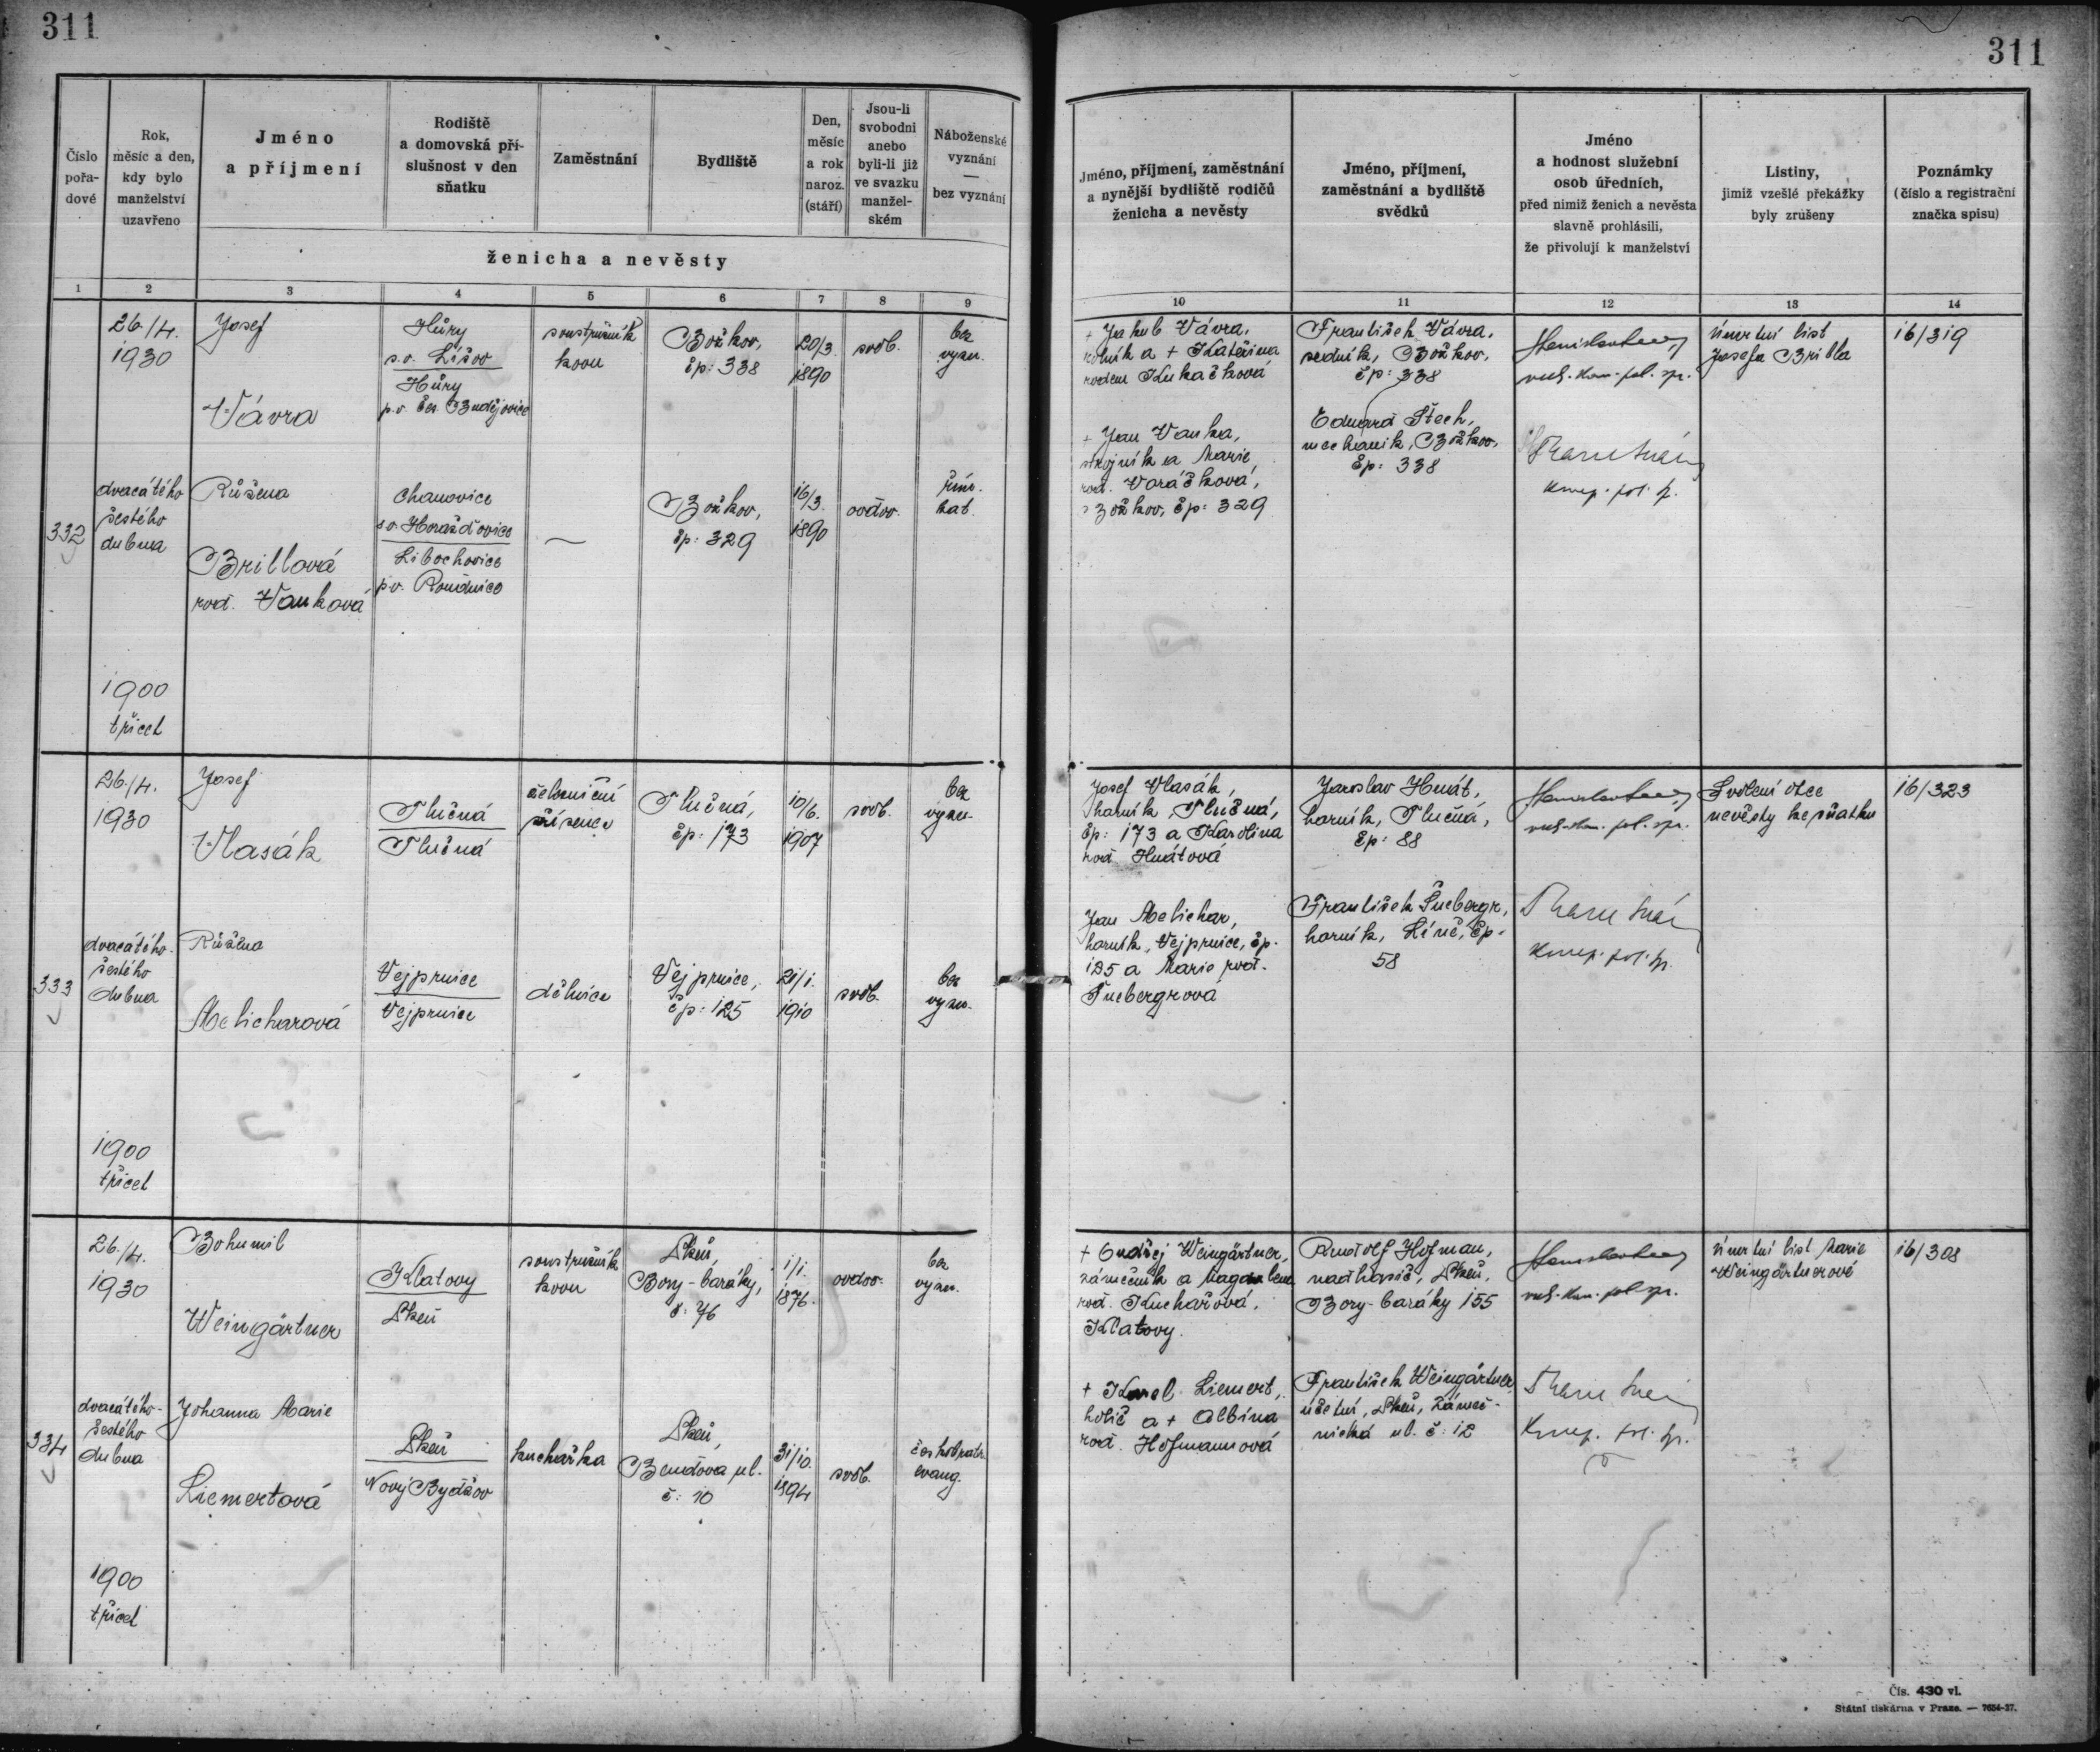 311
Číslo pořa-dové
Rok, měsíc a den, kdy bylo manželství uzavřeno
Jméno a příjmení
Rodiště a domovská pří-slušnost v den sňatku
Zaměstnání
Bydliště
Den, měsíc a rok naroz. (stáří)
Jsou-li svobodni anebo byli-li již ve svazku manžel-ském
Náboženské vyznání — bez vyznání
ženicha a nevěsty
1 2 3 4 5 6 7 8 9
332
26./4.
1930
dvacátého
šestého
dubna
1900
třicet
Josef
Vávra
Hůry
s.o. Lišov
Hůry
p.o. Čes. Budějovice
soustružník
kovu
Božkov,
čp: 338
20/3.
1890
svob.
bez
vyzn.
Růžena
Brillová
rod. Vaňková
Chanovice
s.o. Horažďovice
Libochovice
p.o. Roudnice
—
Božkov,
čp: 329
16/3.
1890
ovdov.
řím.
kat.
333
26./4.
1930
dvacátého-
šestého
dubna
1900
třicet
Josef
Vlasák
Tlučná
Tlučná
železniční
zřízenec
Tlučná,
čp: 173
10/6.
1907
svob.
bez
vyzn.
Růžena
Melicharová
Vejprnice
Vejprnice
dělnice
Vejprnice,
čp: 125
21/1.
1910
svob.
bez
vyzn.
334
26./4.
1930
dvacátého-
šestého
dubna
1900
třicet
Bohumil
Weingärtner
Klatovy
Plzeň
soustružník
kovu
Plzeň,
Bory-baráky,
č: 76
1/1.
1876.
ovdov.
bez
vyzn.
Johanna Marie
Liemertová
Plzeň
Nový Bydžov
kuchařka
Plzeň,
Bendova ul.
č: 10
31/10.
1894
svob.
evang.
311
Jméno, příjmení, zaměstnání
a nynější bydliště rodičů
ženicha a nevěsty
Jméno, příjmení,
zaměstnání a bydliště
svědků
Jméno
a hodnost služební
osob úředních,
před nimiž ženich a nevěsta
slavně prohlásili,
že přivolují k manželství
Listiny,
jimiž vzešlé překážky
byly zrušeny
Poznámky
(číslo a registrační
značka spisu)
10 11 12 13 14
+ Jakub Vávra,
rolník a + Kateřina
rodem Kukačková
František Vávra,
zedník, Božkov,
čp: 338
Úmrtní list
Josefa Brilla
16/319
+ Jan Vaňka,
strojník a Marie
rod. Voráčková,
Božkov, čp: 329
Eduard Štech,
mechanik, Božkov,
čp: 338
Josef Vlasák,
horník, Tlučná,
čp: 173 a Karolina
rod. Hnátová
Jaroslav Hnát,
horník, Tlučná,
čp: 88
Svolení otce
nevěsty ke sňatku
16/323
Jan Melichar,
horník, Vejprnice, čp.
125 a Marie rod.
Šnebergrová
František Šnebergr,
horník, Líně, čp.
58
+ Ondřej Weingärtner,
zámečník a Magdalena
rod. Kuchařová,
Klatovy.
Rudolf Hofman,
nadhasič, Plzeň,
Bory-baráky 155
Úmrtní list Marie
Weingärtnerové
16/308
+ Karel Liemert,
holič a + Albína
rod. Hofmannová
František Weingärtner
účetní, Plzeň, Zámeč-
nická ul. č: 12
Čís. 430 vl.
Státní tiskárna v Praze. — 7654-37.